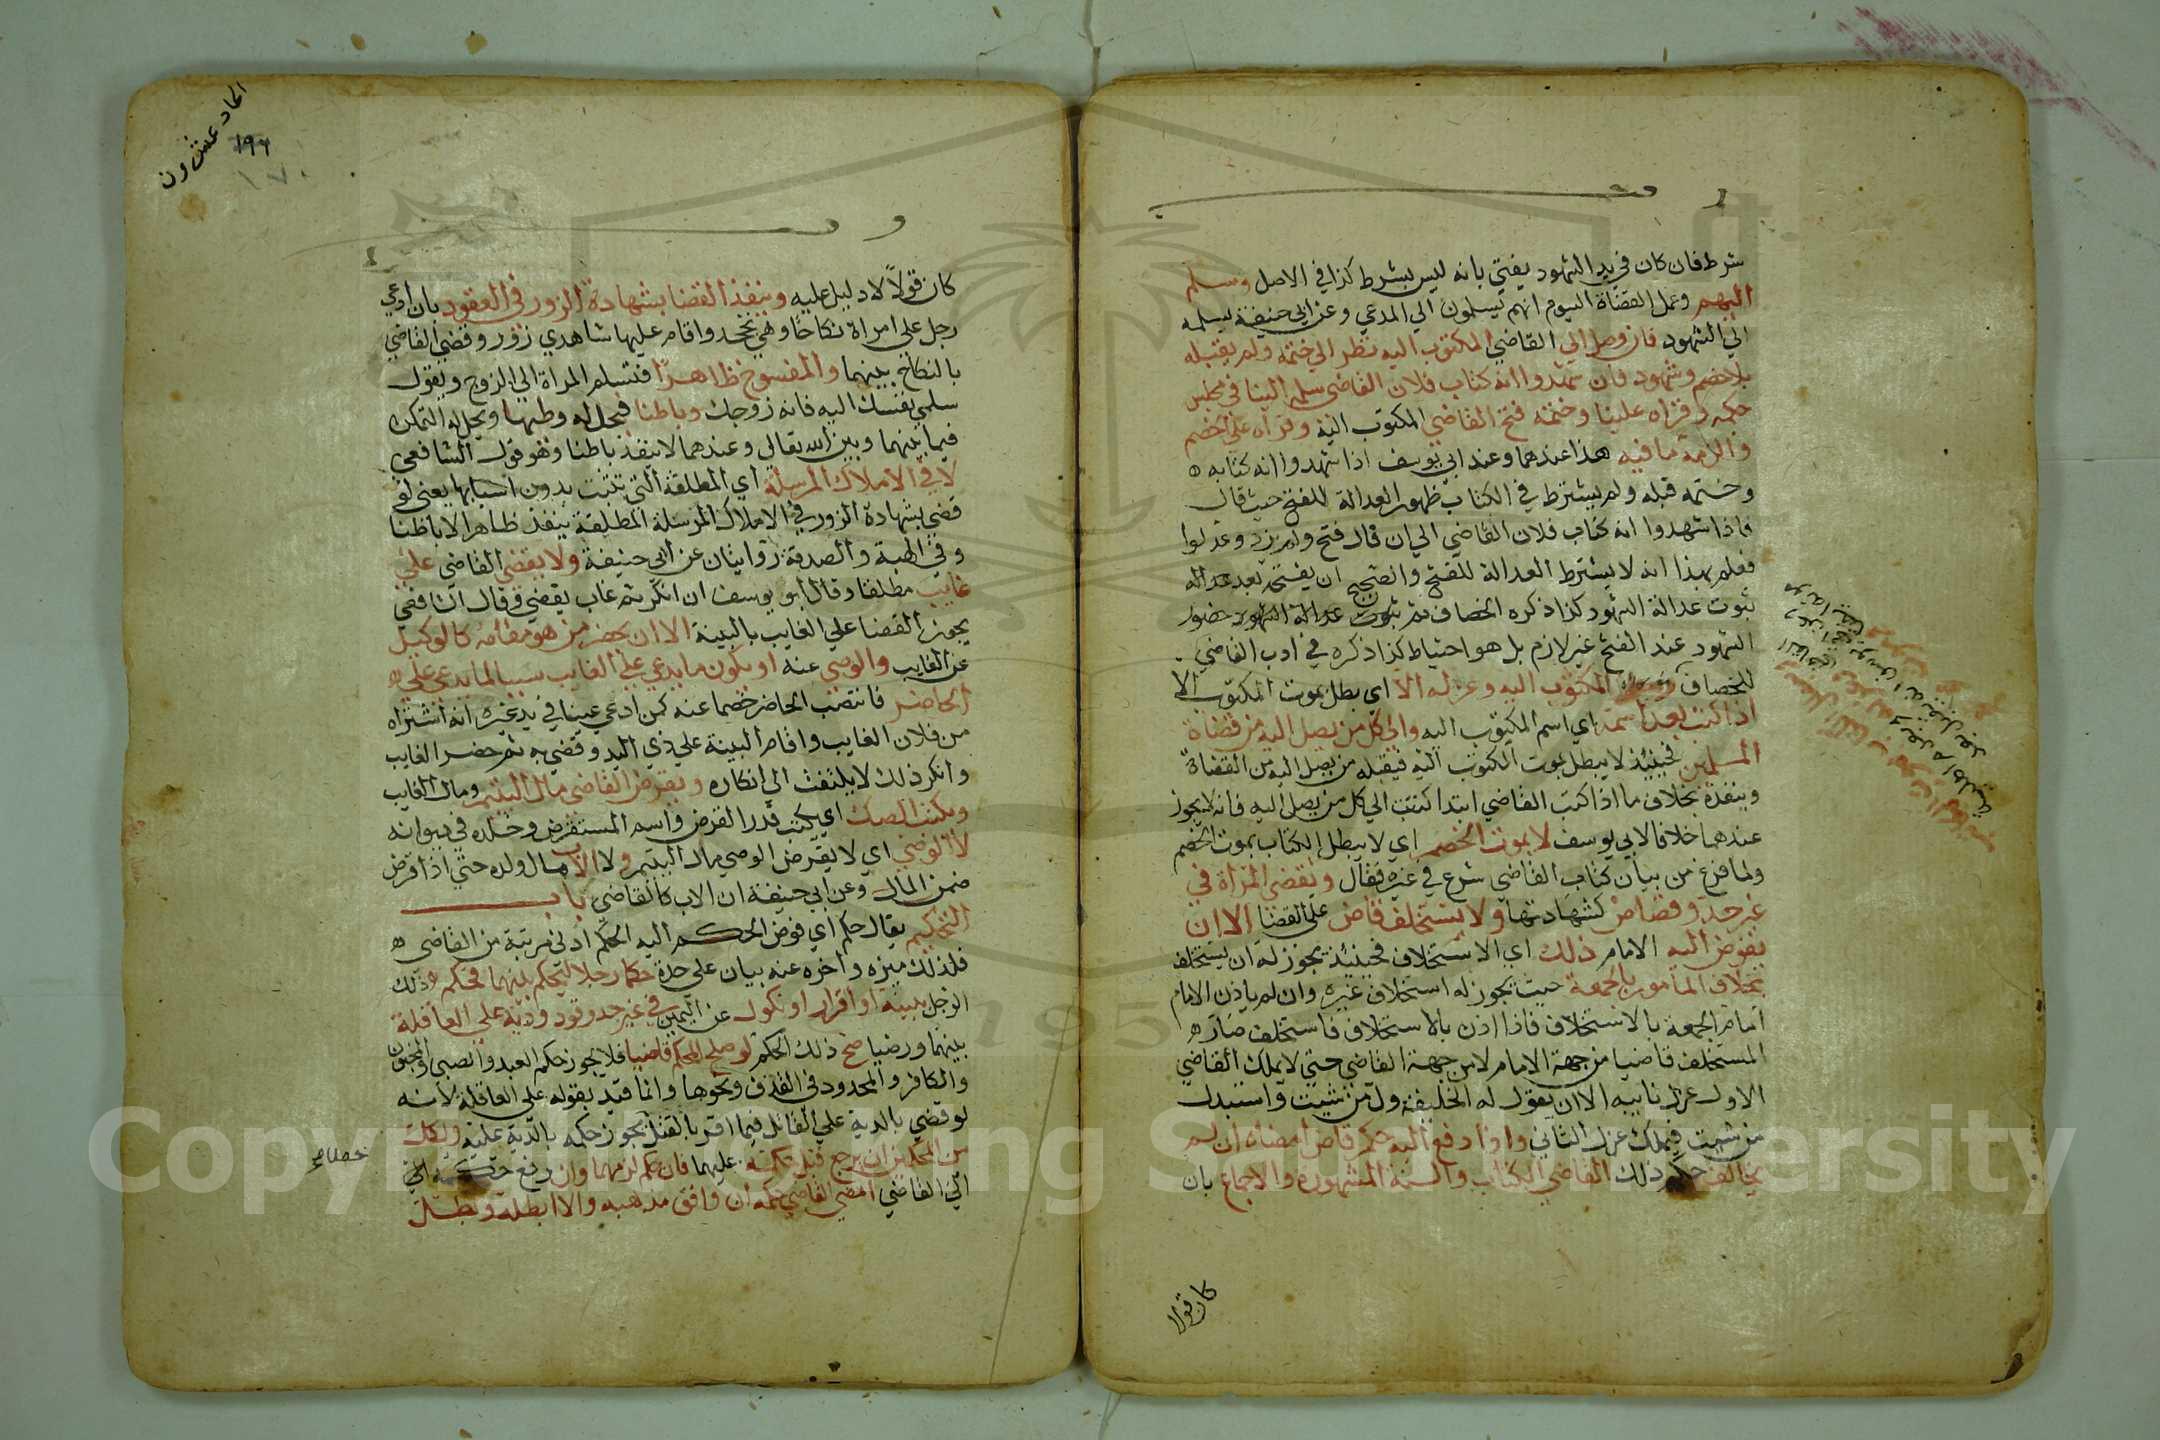 شرط فان كان في يد الشهود يفتي بانه ليس بشرط كذا في الاصل وسلم
اليهم وعمل القضاة اليوم انهم يسلمون الي المدعي وعن ابي حنيفة يسلمه
الي الشهود فان وصل الي القاضي المكتوب اليه نظر الي ختمه ولم يقبله
بلا خصم وشهود فان شهدوا انه كتاب فلان القاضي سلم الينا في مجلس
حكمه وقراه علينا وختمه فتح القاضي المكتوب اليه وقراه علي الخصم
والزمه ما فيه هذا عندهما وعند ابي يوسف اذا شهدوا انه كتابه
وختمه قبله ولم يشترط في الكتاب ظهور العدالة للفتح حيث قال
فاذا شهدوا انه كتاب فلان القاضي الي ان قال فتح ولم يزد وعدلوا
فعلم بهذا انه لا يشترط العدالة للفتح والصحيح ان يفتح بعد
ثبوت عدالة الشهود كذا ذكره الخصاف ثم حضور
الشهود عند الفتح غير لازم بل هو احتياط كذا ذكره في ادب القاضي
للخصاف المكتوب اليه وعزله الا اي بطل بموت المكتوب الا
اذا كتب بعد اسمه اي اسم المكتوب اليه والي كل من يصل اليه من قضاة
المسلمين فحينئذ لا يبطل بموت المكتوب اليه فيقبله من يصل اليه من القضاة
وينفذه بخلاف ما اذا كتب القاضي ابتدا كتبت الي كل من يصل اليه فانه لا يجوز
عندهما خلافا لابي يوسف لا بموت الخصم اي لا يبطل الكتاب بموت الخصم
ولما فرغ من بيان كتاب القاضي شرع في غيره فقال وتقضي المراة في
غير حد وقصاص كشهادتها ولا يستخلف قاض علي القضا الا ان
يفوض اليه الامام ذلك اي الاستخلاف فحينئذ يجوز له ان يستخلف
بخلاف المامور بالجمعة حيث يجوز له استخلاف غيره وان لم ياذن الامام
امام الجمعة بالاستخلاف فاذا اذن بالاستخلاف فاستخلف صار
المستخلف قاضيا من جهة الامام لا من جهة القاضي حتي لا يملك القاضي
الاول عزل نايبه الا ان يقول له الخليفة ول من شيت واستبدل
من شيت فيملك عزل الثاني واذا دفع اليه حكم قاض امضاه ان لم
يخالف حكم ذلك القاضي الكتاب والسنة المشهورة والاجماع بان
كان قولا
الحاد عشرون
١٩٦
١٧٠
كان قولاً لا دليل عليه وينفذ القضا بشهادة الزور في العقود بان ادعي
رجل علي امراة نكاحا وهي تجحد واقام عليها شاهدي زور وقضي القاضي
بالنكاح بينهما والفسوخ ظاهراً فتسلم المراة الي الزوج ويقول
سلمي نفسك اليه فانه زوجك وباطنا فيحل له وطيها ويحل له التمكن
فيما بينهما وبين الله تعالي وعندهما لا ينفذ باطنا وهو قول الشافعي
لا في الاملاك المرسلة اي المطلقة التي تثبت بدون اسبابها يعني لو
قضي بشهادة الزور في الاملاك المرسلة المطلقة ينفذ ظاهرا لا باطنا
وفي الهبة والصدقة روايتان عن ابي حنيفة ولا يقضي القاضي علي
غايب مطلقا وقال ابو يوسف ان انكر ثم غاب يقضي وقال الشافعي
يجوز القضا علي الغايب بالبينة الا ان يحضر من هو مقامه كالوكيل
عن الغايب والوصي عنه او يكون ما يدعي علي الغايب سببا لما يدعي علي
الحاضر فانتصب الحاضر خصما عنه كمن ادعي عينا في يد غيره انه اشتراه
من فلان الغايب واقام البينة علي ذي اليد وقضي به ثم حضر الغايب
وانكر ذلك لا يلتفت الي انكاره ويقرض القاضي مال اليتيم ومال الغايب
ويكتب الصك اي يكتب قدر القرض واسم المستقرض وخلده في ديوانه
لا الوصي اي لا يقرض الوصي مال اليتيم ولا الاب مال ولده حتي اذا اقرض
ضمن المال وعن ابي حنيفة ان الاب كالقاضي باب
التحكيم يقال حكم اي فوض الحكم اليه الحكم ادني مرتبة من القاضي
فلذلك ميزه واخره عنه بيان علي حدة حكما رجلا ليحكم بينهما فحكم ذلك
الرجل ببينة او اقرار او نكول عن اليمين في غير حد وقود ودية علي العاقلة
بينهما ورضيا صح ذلك الحكم لو صلح المحكم قاضيا فلا يجوز حكم العبد والصبي والمجنون
والكافر والمحدود في القذف ونحوها وانما قيد بقوله علي العاقلة لانه
لو قضي بالدية علي القاتل فيما اقر بالقتل يجوز حكمه بالدية عليه ولكل
من المحكمين ان يرجع قبل حكمه عليهما فان حكم لزمهما وان رفع حكمه الي
الي القاضي امضي القاضي حكمه ان وافق مذهبه والا ابطله وبطل